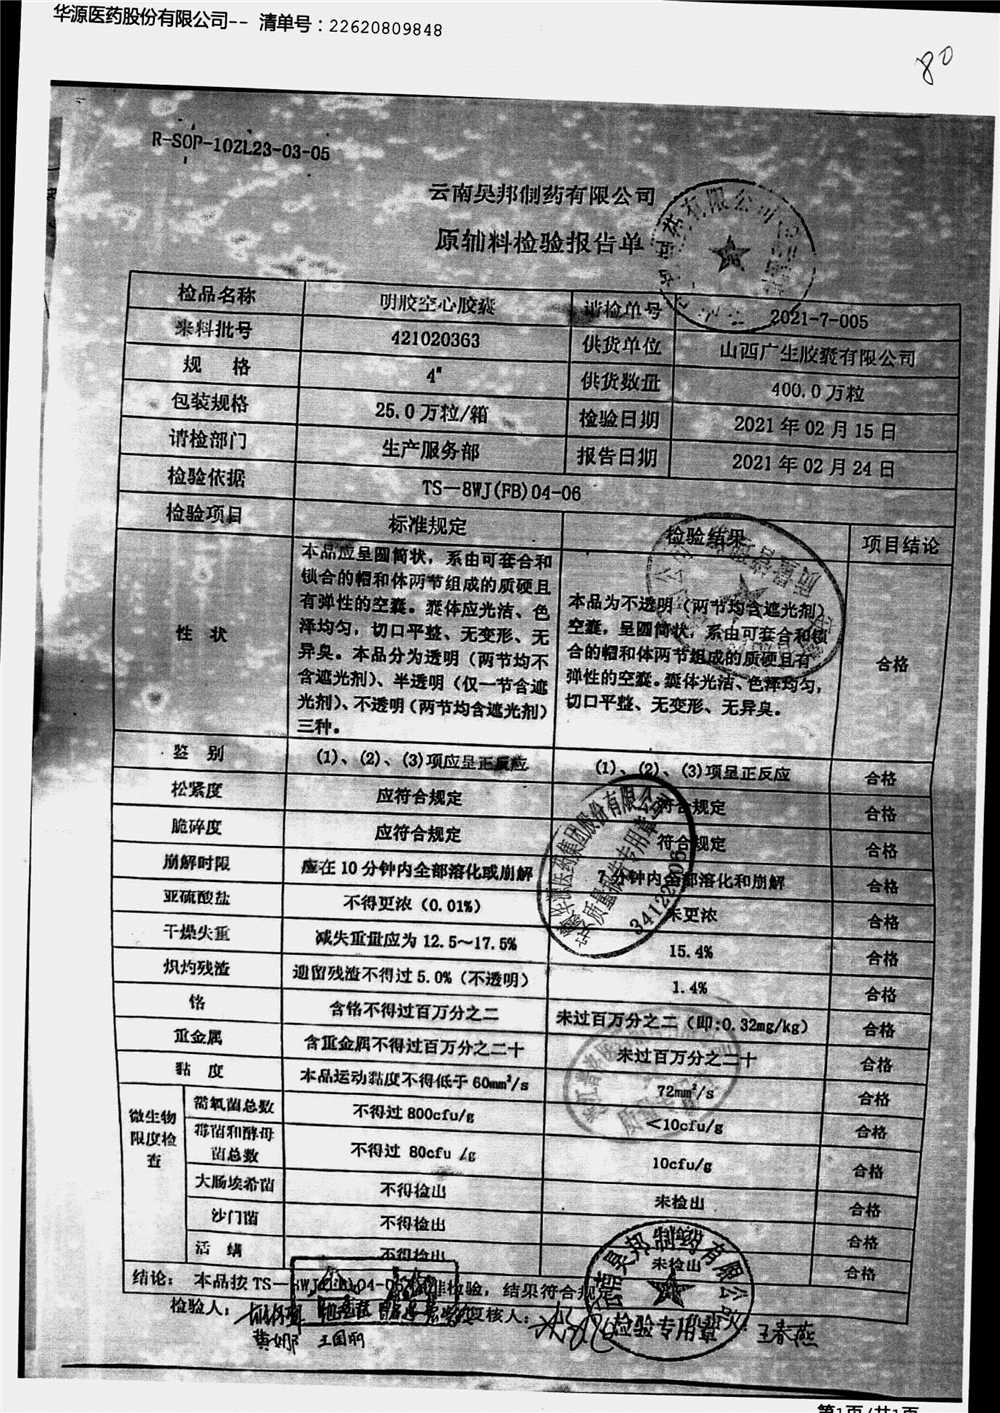 华源医药股份有限公司-- 清单号：22620809848
80
R-SOP-10ZL23-03-05
云南昊邦制药有限公司
原辅料检验报告单
检品名称 明胶空心胶囊 请检单号 2021-7-005
来料批号 421020363 供货单位 山西广生胶囊有限公司
规 格 4# 供货数量 400.0万粒
包装规格 25.0万粒/箱 检验日期 2021年02月15日
请检部门 生产服务部 报告日期 2021年02月24日
检验依据 TS—8WJ(FB)04-06
检验项目 标准规定 检验结果 项目结论
性 状
本品应呈圆筒状，系由可套合和
锁合的帽和体两节组成的质硬且
有弹性的空囊。囊体应光洁、色
泽均匀，切口平整、无变形、无
异臭。本品分为透明（两节均不
含遮光剂）、半透明（仅一节含遮
光剂）、不透明（两节均含遮光剂）
三种。
本品为不透明（两节均含遮光剂）
空囊，呈圆筒状，系由可套合和锁
合的帽和体两节组成的质硬且有
弹性的空囊。囊体光洁、色泽均匀，
切口平整、无变形、无异臭。
合格
鉴 别 (1)、(2)、(3)项应呈正反应 (1)、(2)、(3)项呈正反应 合格
松紧度 应符合规定 符合规定 合格
脆碎度 应符合规定 符合规定 合格
崩解时限 应在10分钟内全部溶化或崩解 7分钟内全部溶化和崩解 合格
亚硫酸盐 不得更浓（0.01%） 未更浓 合格
干燥失重 减失重量应为12.5～17.5% 15.4% 合格
炽灼残渣 遗留残渣不得过5.0%（不透明） 1.4% 合格
铬 含铬不得过百万分之二 未过百万分之二（即:0.32mg/kg） 合格
重金属 含重金属不得过百万分之二十 未过百万分之二十 合格
黏 度 本品运动黏度不得低于60mm²/s 72mm²/s 合格
微生物
限度检
查
需氧菌总数 不得过800cfu/g <10cfu/g 合格
霉菌和酵母
菌总数 不得过 80cfu /g 10cfu/g 合格
大肠埃希菌 不得检出 未检出 合格
沙门菌 不得检出
合格
活 螨 不得检出 未检出 合格
结论： 本品按TS—8WJ(FB)04-06标准检验，结果符合规定
检验人：
复核人：
黄娜 王国明
王春燕
检验专用章
第1页/共1页